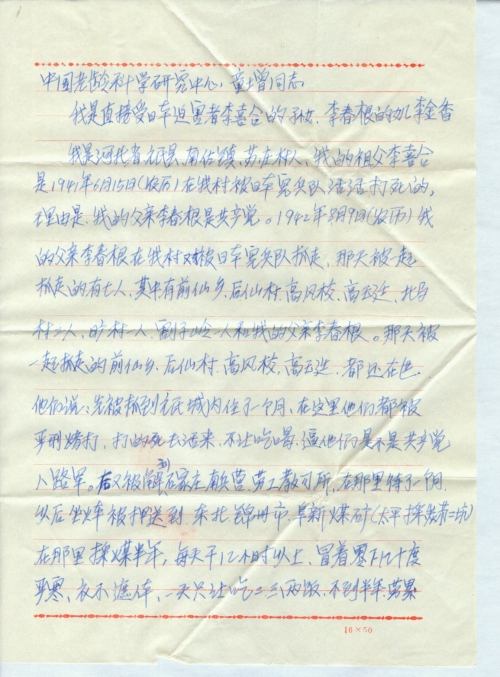 1
中国老龄科学研究中心，童增同志
我是直接受日军迫害者李喜合的孙女，李春根的女儿李金香
我是河北省元氏县，南佐镇，苏庄村人、我的祖父李喜合
是1941年6月15日(农历)在我村被日军宪兵队活活打死的，
理由是，我的父亲李春根是共产党。1942年3月9日(农历)我
的父亲李春根在我村又被日军宪兵队抓走，那天被一起
抓走的有七人，其中有前仙乡，后仙村，高风校，高云廷，北马
村二人，旷村一人，一人和我的父亲李春根。那天被
一起抓走的前仙乡，后仙村，高风校，高云廷，都还在世
他们说、先被抓到元氏城内住了一个月、在这里他们都被
严刑烤打，打的死去活来，不让吃喝，逼他们是不是共产党
八路军。后又被解到石家庄南兵营，劳工教习所，在那里待了一个月
以后坐火车被押送到东北锦州市，阜新煤矿(太平採炭第二坑)
在那里採煤半年，每天干12小时以上，冒着零下几十度
严寒、衣不遮体，一天只让吃二三两饭，不到半年，劳累
16×50